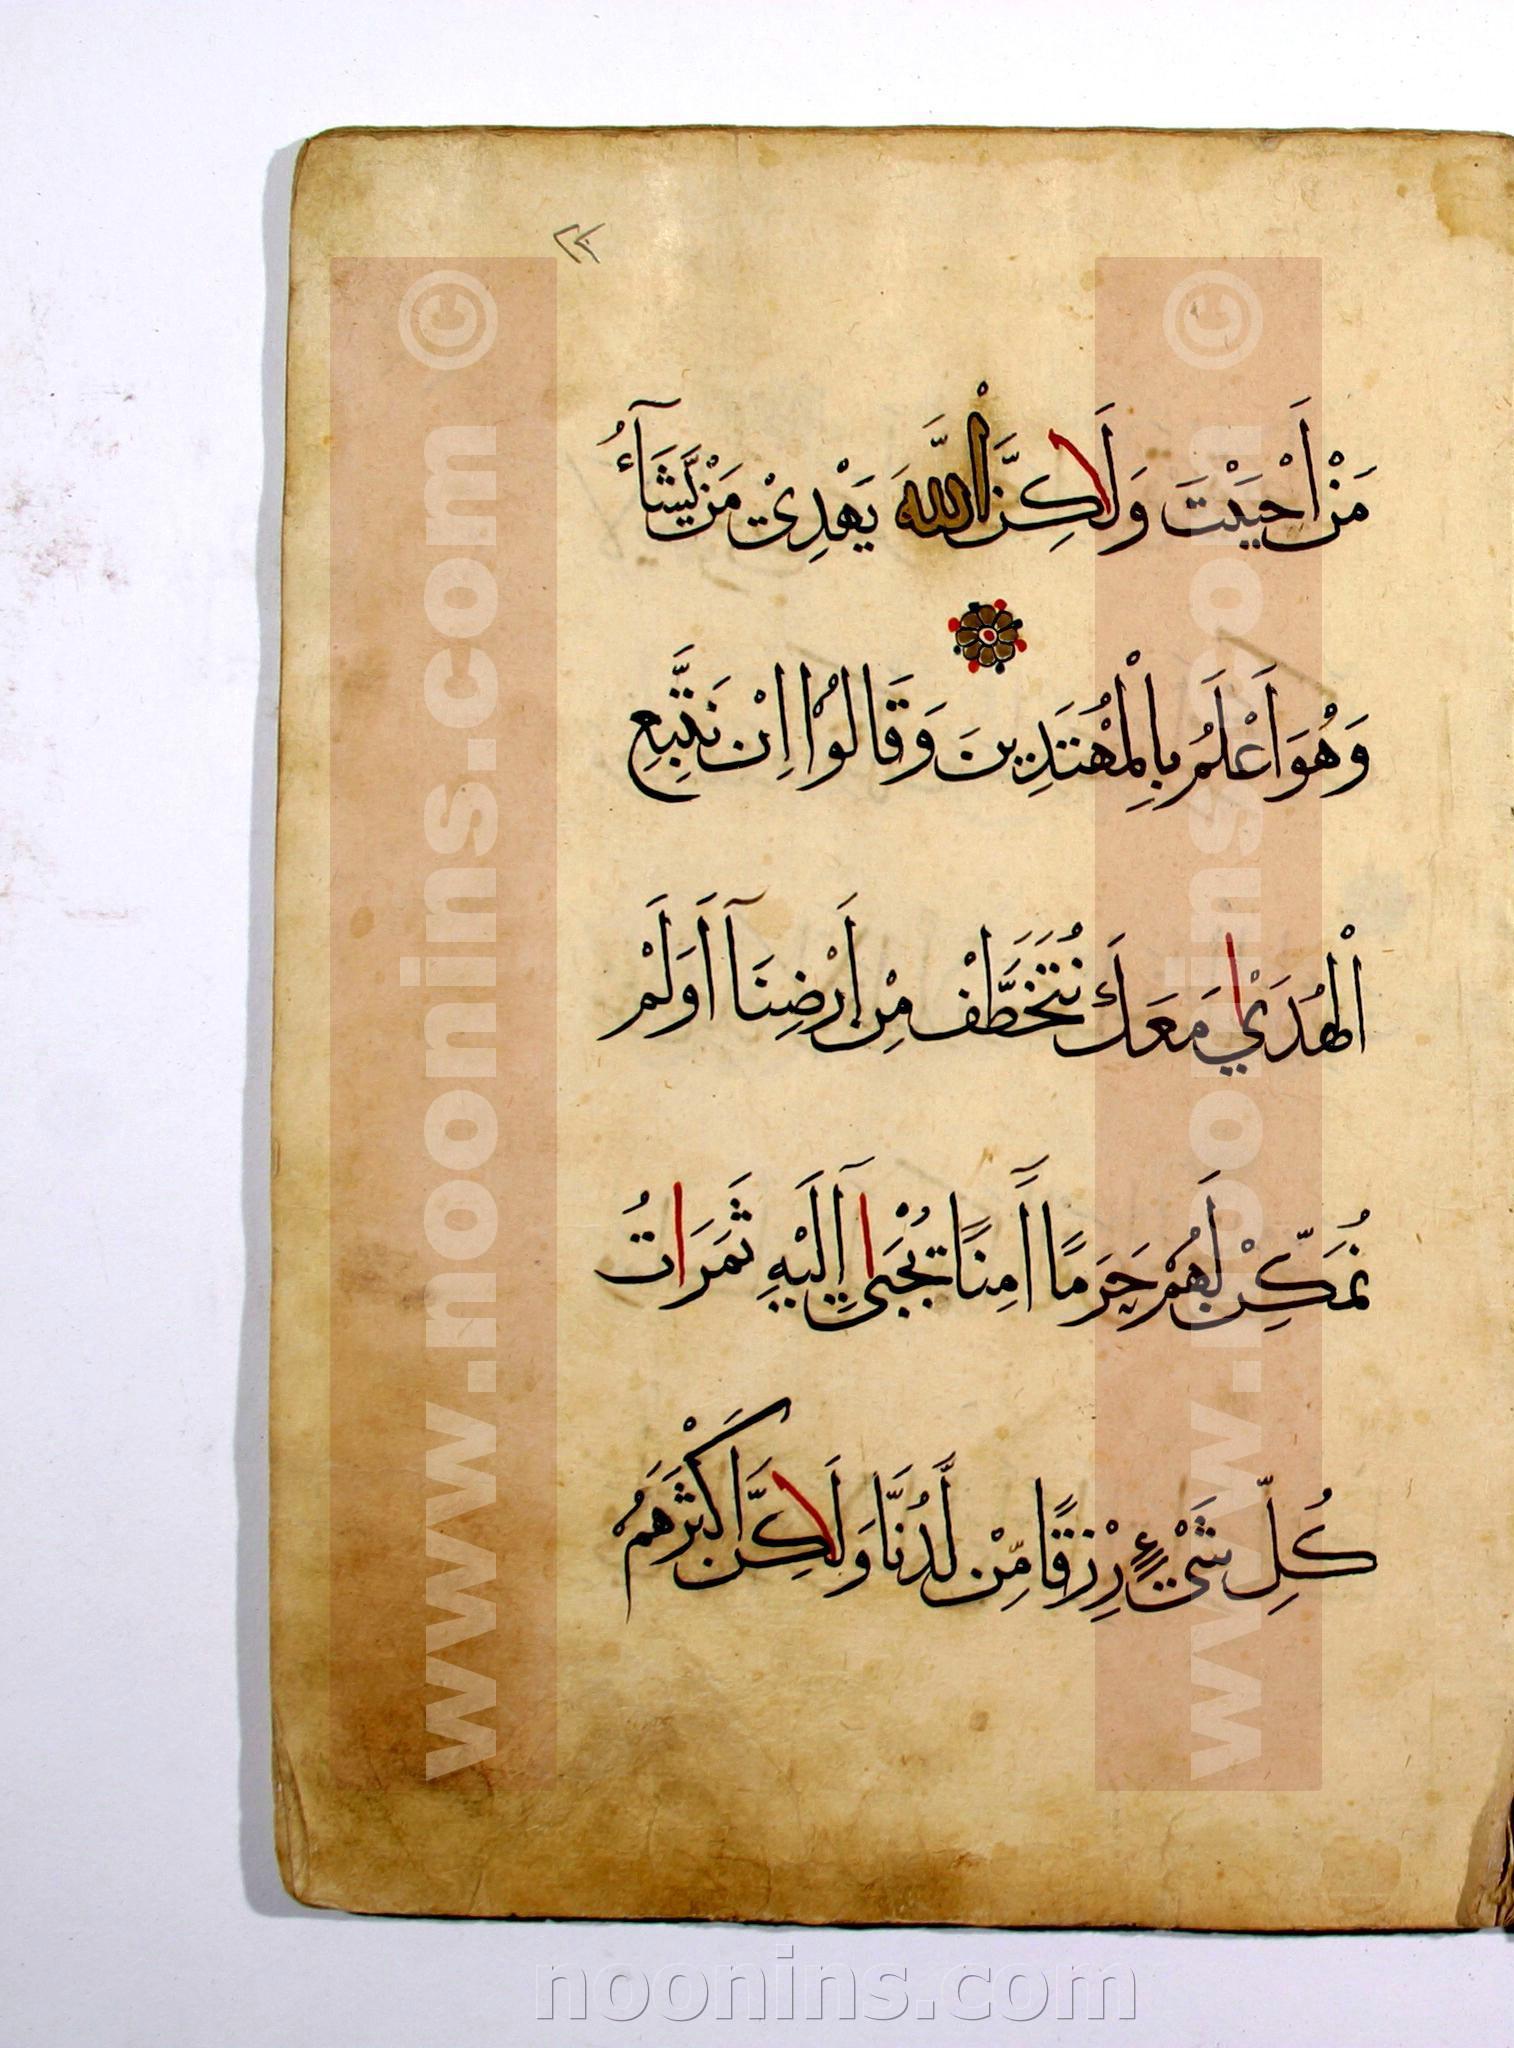 ٢٣
مَنْ اَحْبَبْتَ وَلَاكِنَّ اللّٰهَ يَهْدِيْ مَنْ يَّشَآءُ
وَهُوَ اَعْلَمُ بِالْمُهْتَدِينَ وَقَالُوْا اِنْ نَتَّبِعِ
الْهُدَىٰ مَعَكَ نُتَخَطَّفْ مِنْ اَرْضِنَآ اَوَلَمْ
نُمَكِّنْ لَهُمْ حَرَمًا اٰمِنًا يُجْبَىٰٓ اِلَيْهِ ثَمَرَاتُ
كُلِّ شَيْءٍ رِزْقًا مِّنْ لَّدُنَّا وَلَاكِنَّ اَكْثَرَهُمْ
www.noonins.com ©
www.noonins.com ©
noonins.com